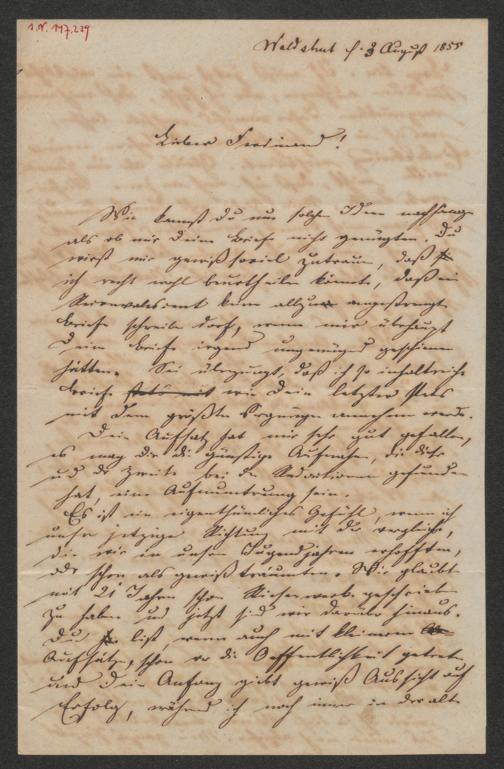 I.N. 147.229
Waldshut d. 3 August 1855
Lieber Ferdinand!
Wie kannst Du nur solchen Ideen nachhängen
als ob mir Deine Briefe nicht genügten. Du
wirst mir gewiß soviel zutrauen, daß
ich recht wohl beurtheilen könnte, daß ein
kein allzu angestrengte
Briefe schreiben darf, wenn mir überhaupt
Dein Brief irgend ungenügend geschienen
hätte. Sei überzeugt, daß ich so inhaltreiche
Briefe wie Dein letzter stets
mit dem größten Vergnügen annehmen werde.
Dein Aufsatz hat mir sehr gut gefallen,
es mag Dir die günstige Aufnahme, die dieser
und der zweite bei der Redaktion gefunden
hat, eine Aufmunterung sein.
Es ist ein eigenthümliches Gefühl, wenn ich
unsre jetzige Richtung mit der vergleiche,
die wir in unsern Jugendjahren erhofften,
oder schon als gewiß träumten. Wir glaubten
mit 21 Jahren schon geschrieben
zu haben und jetzt sind wir darüber hinaus.
Du bist wenn auch mit kleineren
Aufsätzen, schon vor die Oeffentlichkeit getreten
und Dein Anfang gibt gewiß Aussicht auf
Erfolg, während ich noch immer in der alten